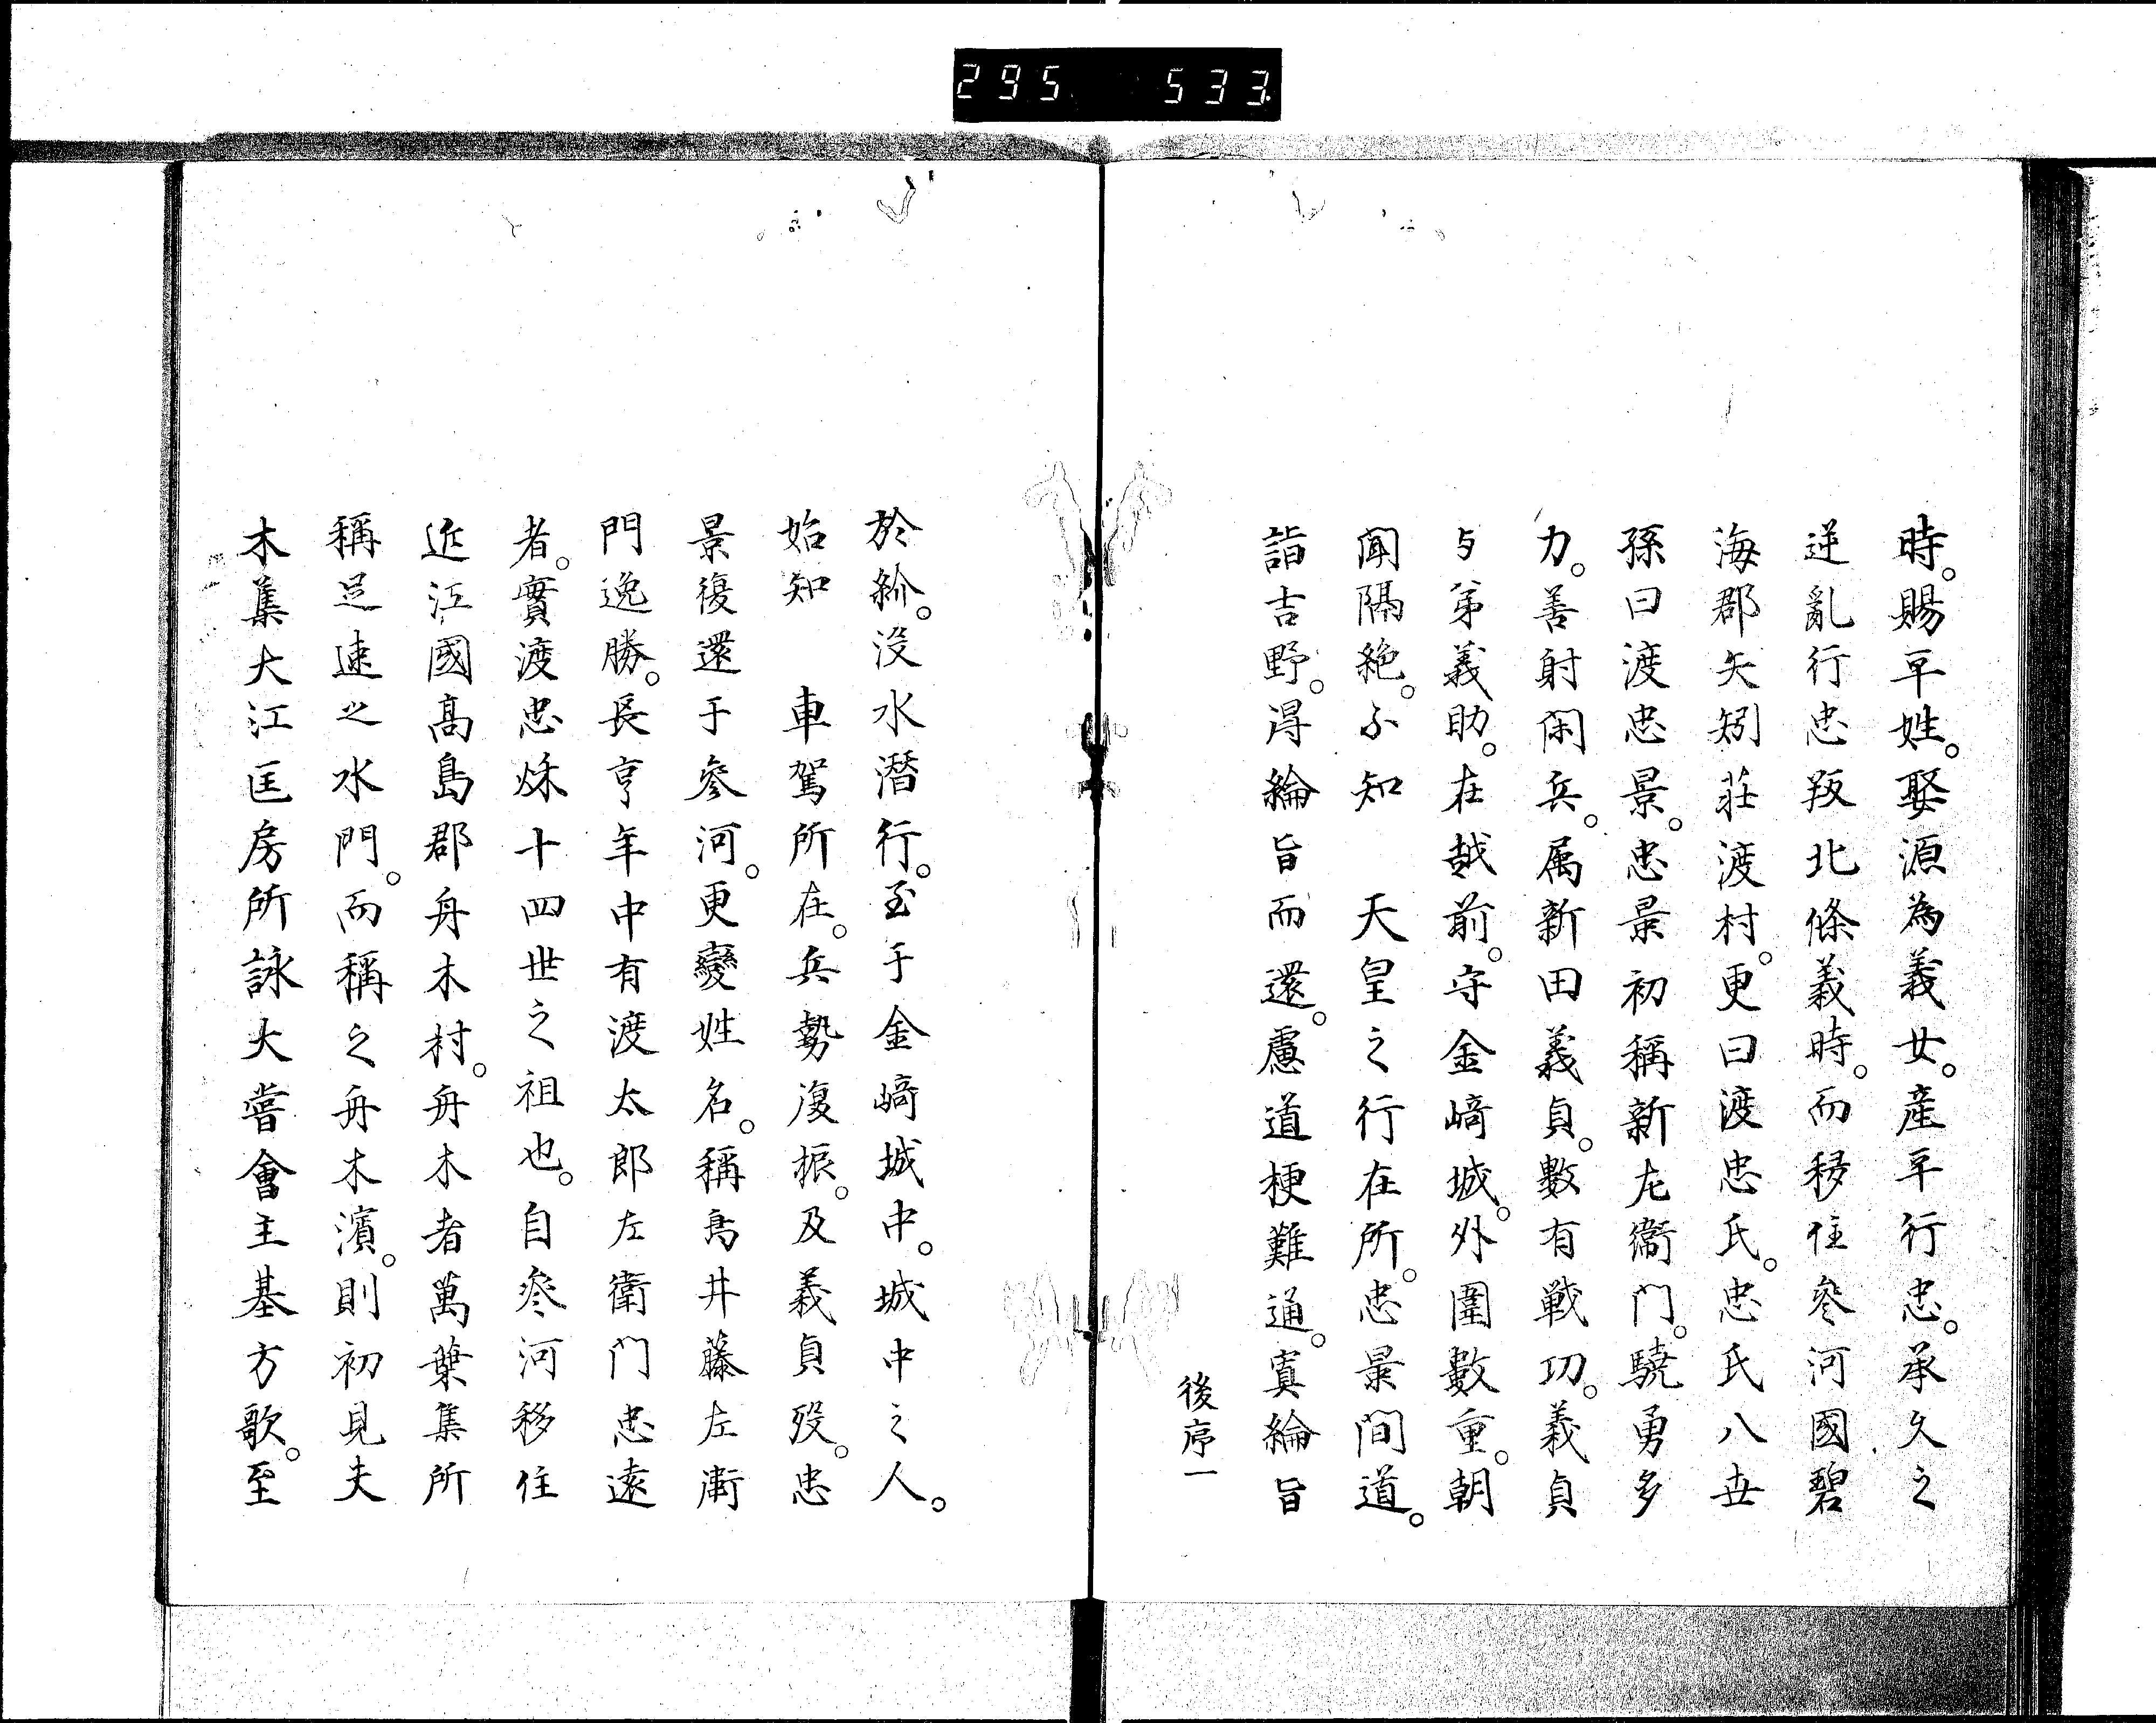 295 533
時。賜平姓。娶源為義女。產平行忠。承久之
逆亂行忠叛北條義時。而移住參河國碧
海郡矢矧莊渡村。更曰渡忠氏。忠氏八世
孫曰渡忠景。忠景初稱新左衞門。驍勇多
力。善射閑兵。属新田義貞。數有戰功。義貞
与弟義助。在越前。守金﨑城。外圍數重。朝
聞隔絶。不知　天皇之行在所。忠景間道。
詣吉野。得綸旨而還。慮道梗難通。寘綸旨
後序一
於紒。没水潛行。至于金﨑城中。城中之人。
始知　車駕所在。兵勢復振。及義貞歿。忠
景復還于參河。更變姓名。稱鳥井藤左衛
門逸勝。長亨年中有渡太郎左衛門忠遠
者。實渡忠秌十四世之祖也。自參河移住
近江國髙島郡舟木村。舟木者萬葉集所
稱足速之水門。而稱之舟木濱。則初見夫
木集大江匡房所詠大嘗會主基方歌。至